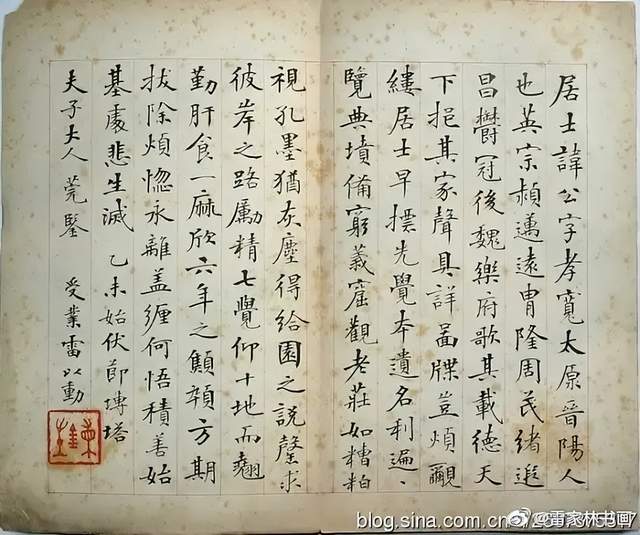 居士諱公字孝寬太原晉陽人
也英宗頳邁遠胄隆周民緒遐
昌欝冠後魏樂府歌其載德天
下挹其家聲具詳啚牒豈煩覼
縷居士早摽先覺本遺名利遍、
覽典墳備窮義窟觀老莊如糟粕
視孔墨猶灰塵得給園之說罄求
彼岸之路勵精七覺仰十地而翹
勤肝食一麻欣六年之顦顇方期
拔除煩惚永離盖纏何悟積善始
基處悲生滅 乙未始伏節塼塔
夫子大人莞鋻 受業雷以動
@雷家林书画
blog.sina.com.cn